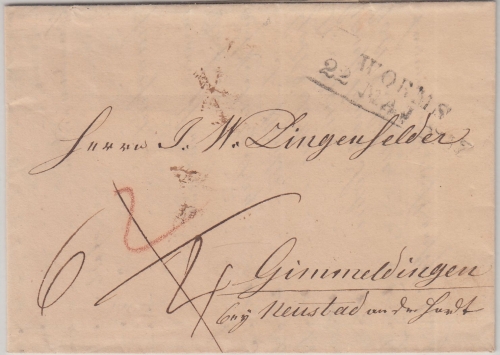 WORMS
22 MAI
Herrn J. W. Lingenfelder
2
6 4
Gimmeldingen
bey Neustad an der Hardt